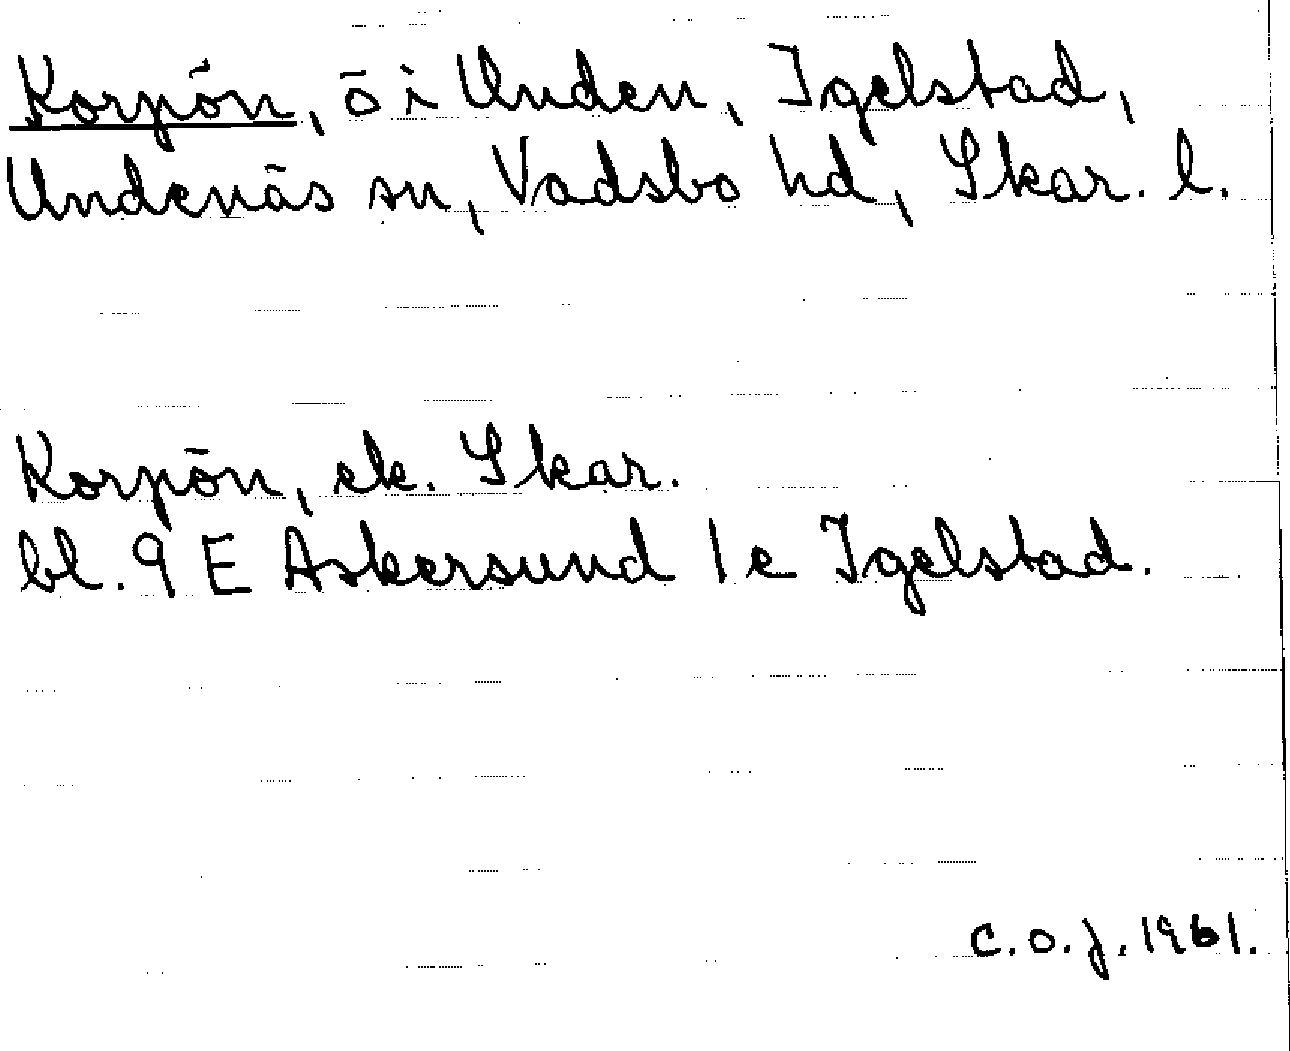 Korpön, ö i Unden, Igelstad,
Undenäs sn, Vadsbo hd, Skar. l.
Korpön, ek. Skar.
bl. 9 E Askersund 1 c Igelstad.
C.O.J. 1961.